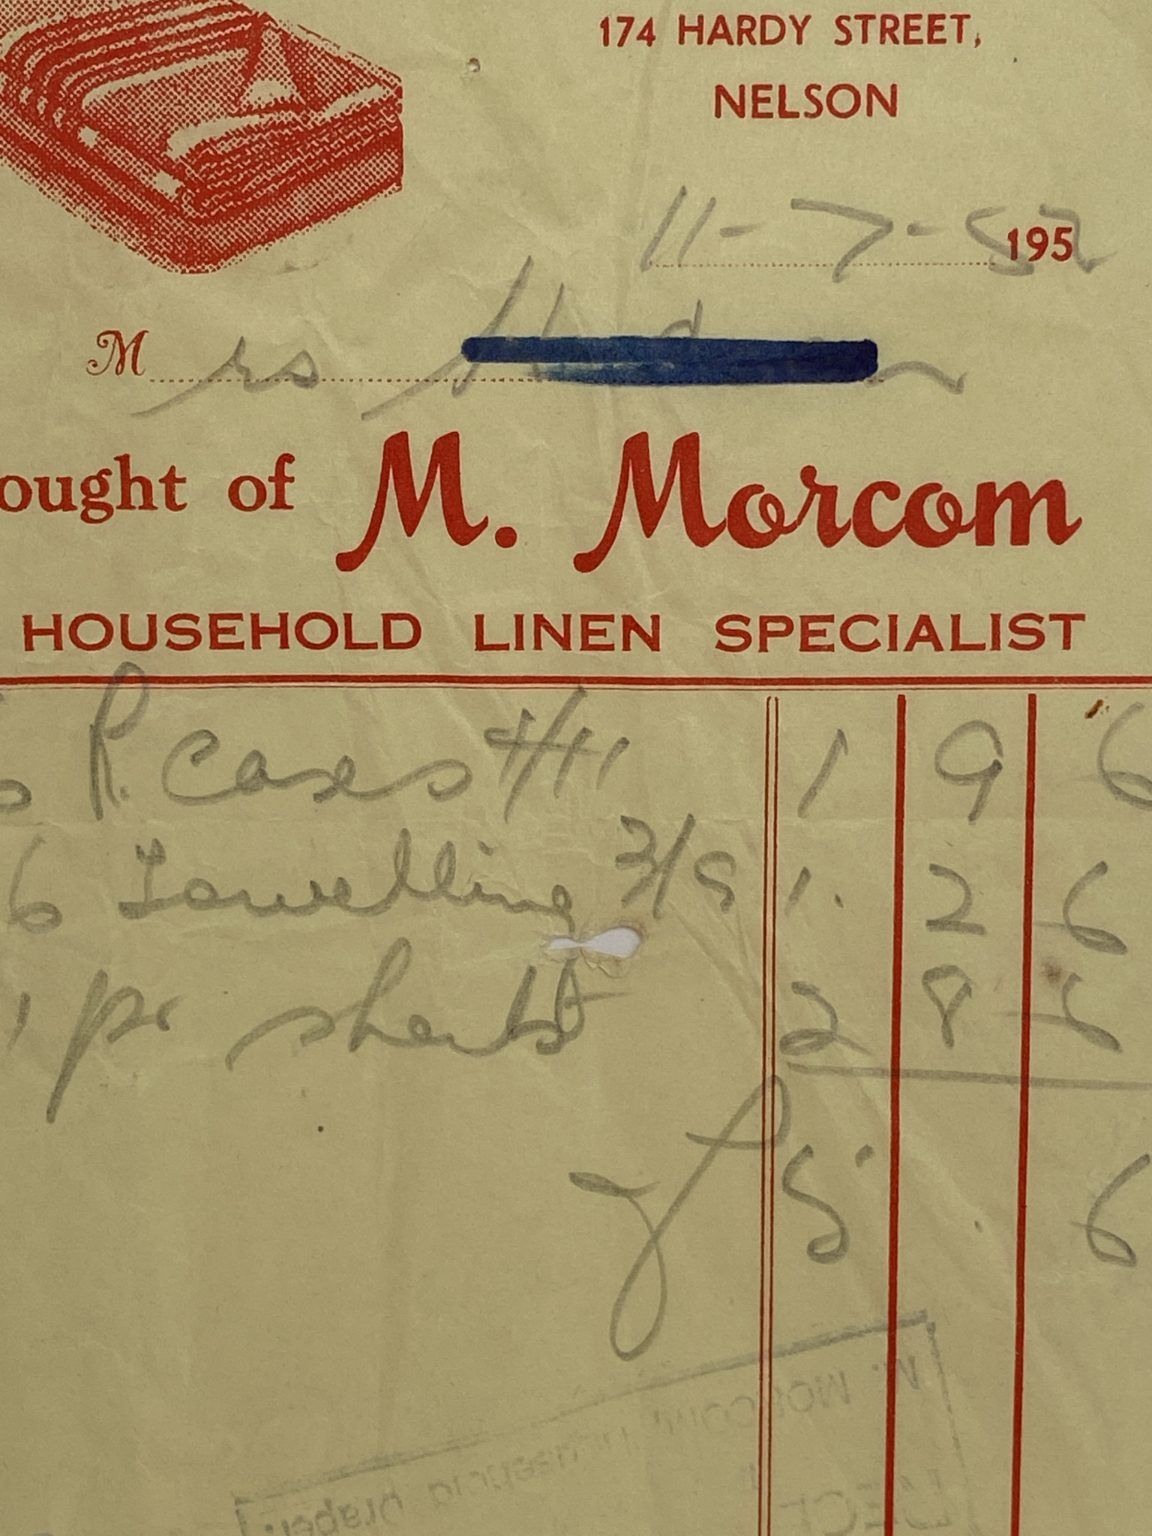 174 HARDY STREET,
NELSON
11-7-52 195
Mrs
ought of M. Morcom
HOUSEHOLD LINEN SPECIALIST
6 P. Cases 4/11 1 9 6
6 Towelling 3/9 1. 2 6
1 pr sheets 2 8 6
£5. . 6
M. MORCOM
Household Draper